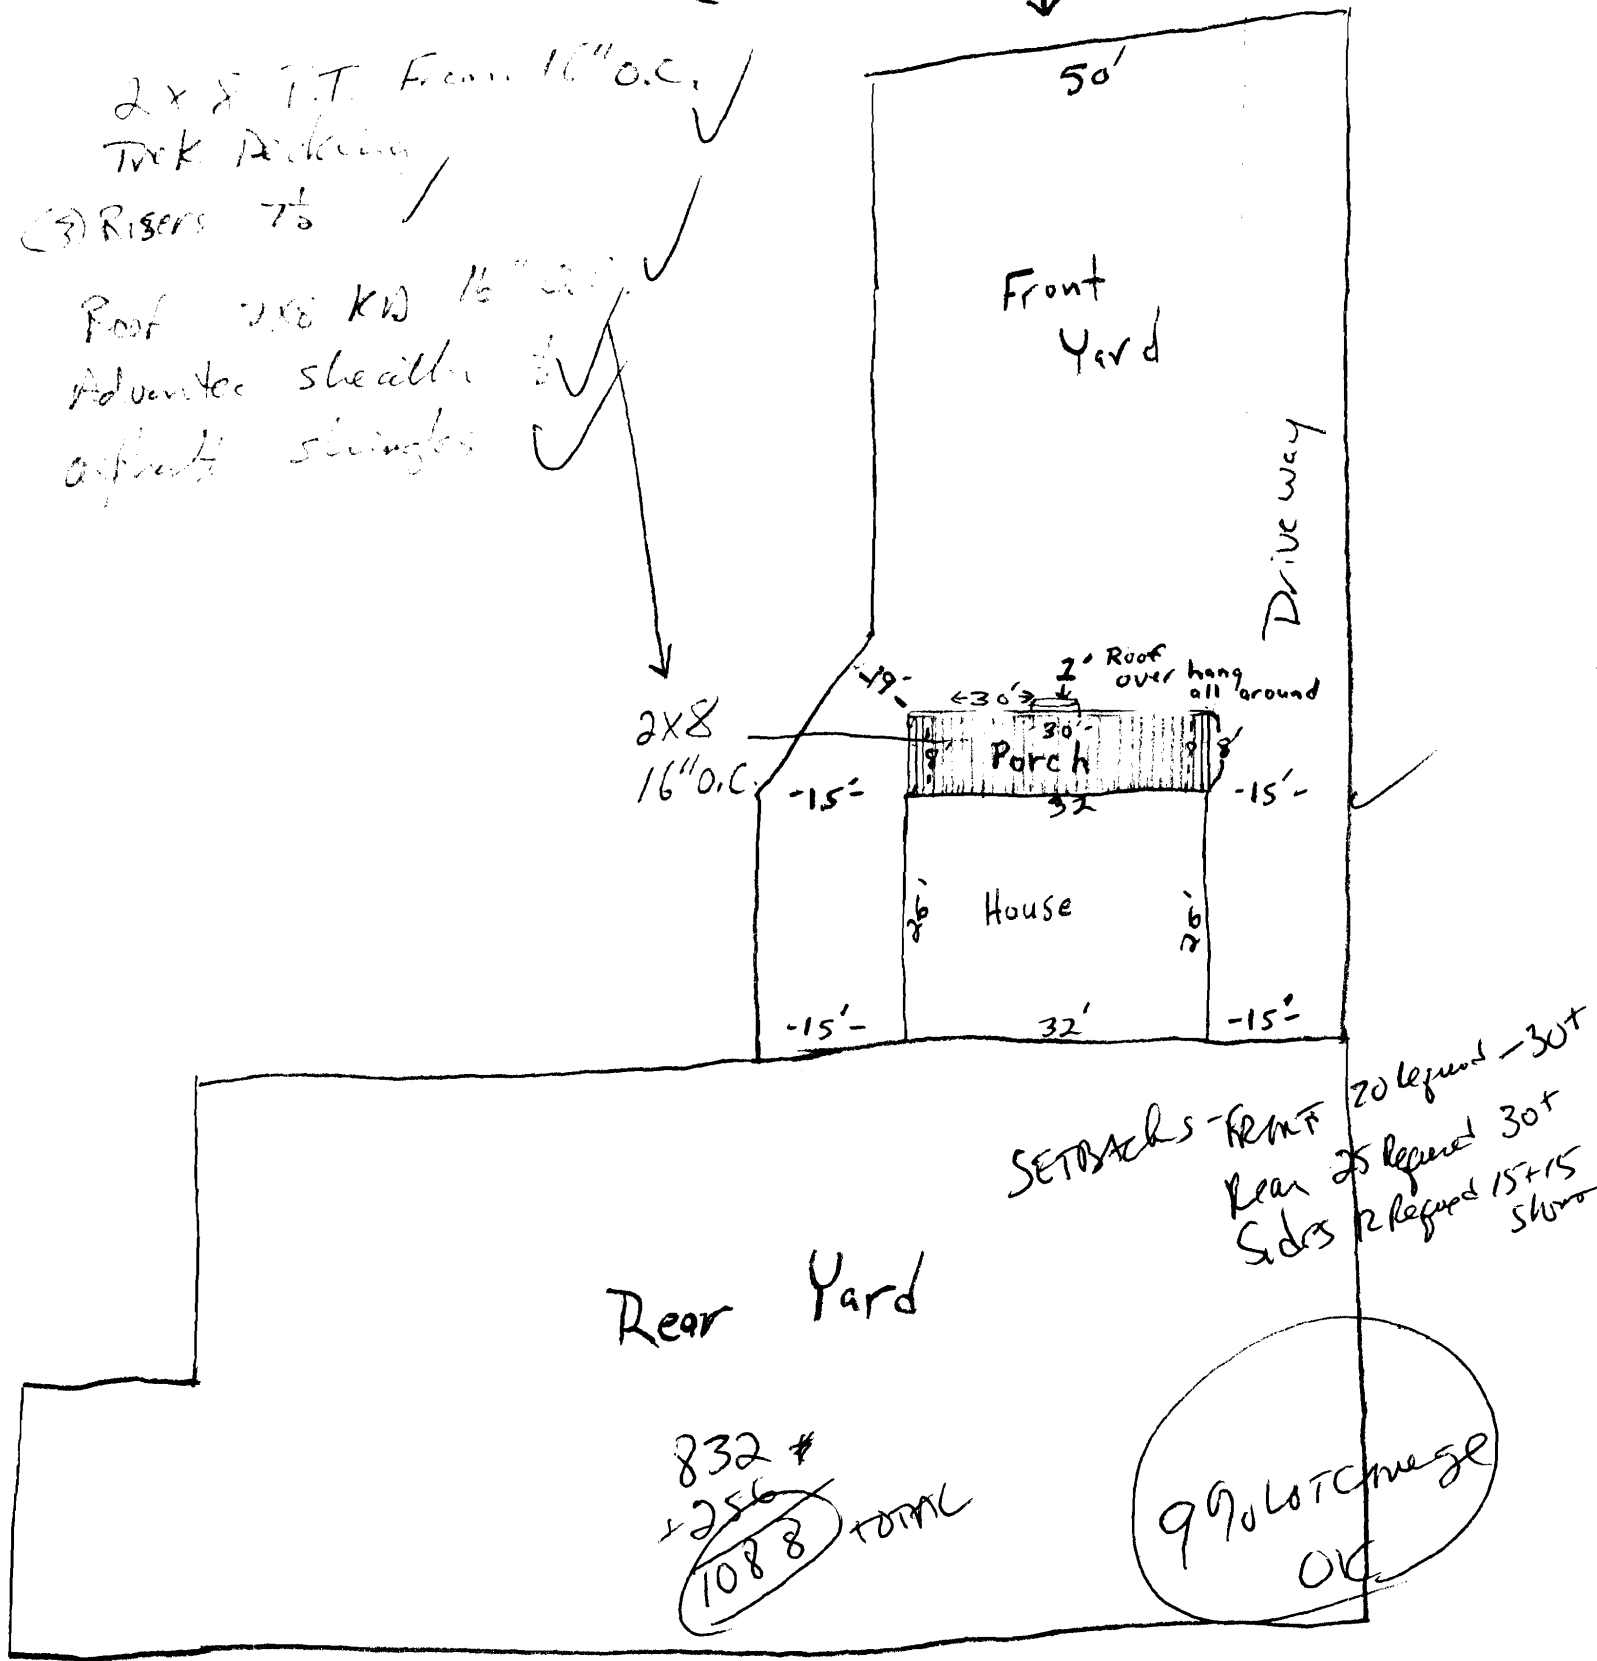 50'
2 x 8 P.T. Frame 16" O.C.
Trek Decking
(3) Risers 7½
Roof 2x8 KD 16" O.C.
Advantec sheath ½
asphalt shingles
Front
Yard
Drive way
2x8
16" O.C.
-19'-
←30'→
1' Roof
over hang
all around
-30'-
8
Porch
8
8'
-15'-
32
-15'-
26'
House
26'
-15'-
32'
-15'-
SETBACKS - FRONT 20 Required - 30+
Rear 25 Required 30+
Sides 12 Required 15+15
Shown
Rear Yard
832 #
+256
1088 TOTAL
9% LOT Coverage
OK